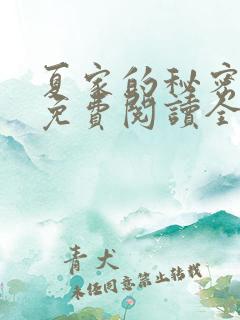 夏家的秘密
免費閱讀全
青犬
未经同意禁止转载